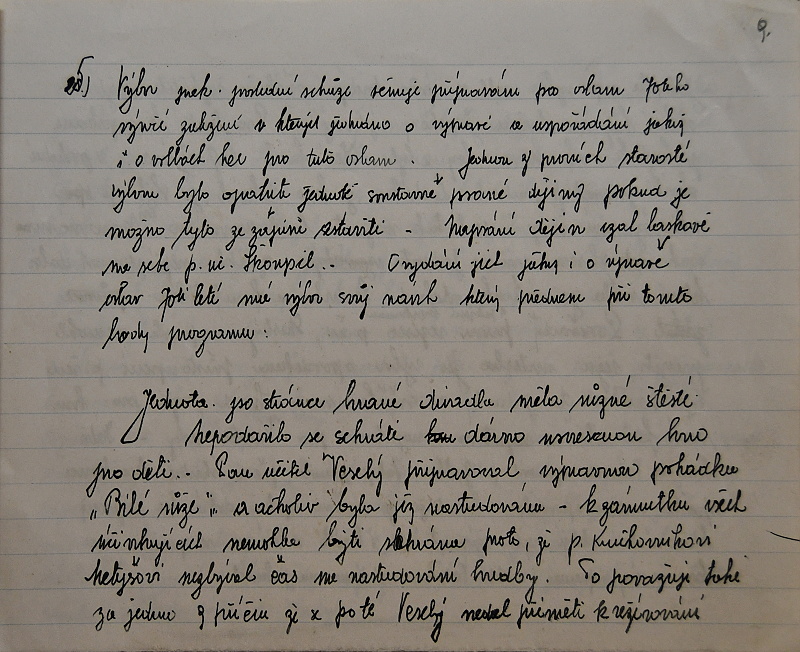 9.
Výbor jmek. poslední schůze věnuje přípravám pro oslavu 70ti ho
výročí založení v kterých jednáno o výpravě a uspořádání jakož
i o volbách her pro tuto oslavu. Jednou z prvních starostí
výboru bylo opatřiti Jednotě soustavné psané dějiny pokud je
možno bylo ze zápisů sestaviti - Napsání dějin vzal laskavě
na sebe p. uč. Škoupil.. O vydání jich jakož i o výpravě
oslav 70ti letí má výbor svůj návrh který přednese při tomto
bodu programu:
Jednota po stránce hraní divadla měla různé štěstí
Nepodařilo se sehráti dávno usnesenou hru
pro děti.. Pan učitel Veselý připravoval výpravnou pohádku
„Bílé růže". a ačkoliv byla již nastudována - k zármutku všech
účinkujících nemohla býti sehrána proto, že p. Kuchovníkovi
Netyšovi nezbýval čas na nastudování hudby. To považuji také
za jedno z příčin že p. poté Veselý nedal přiměti k režírování